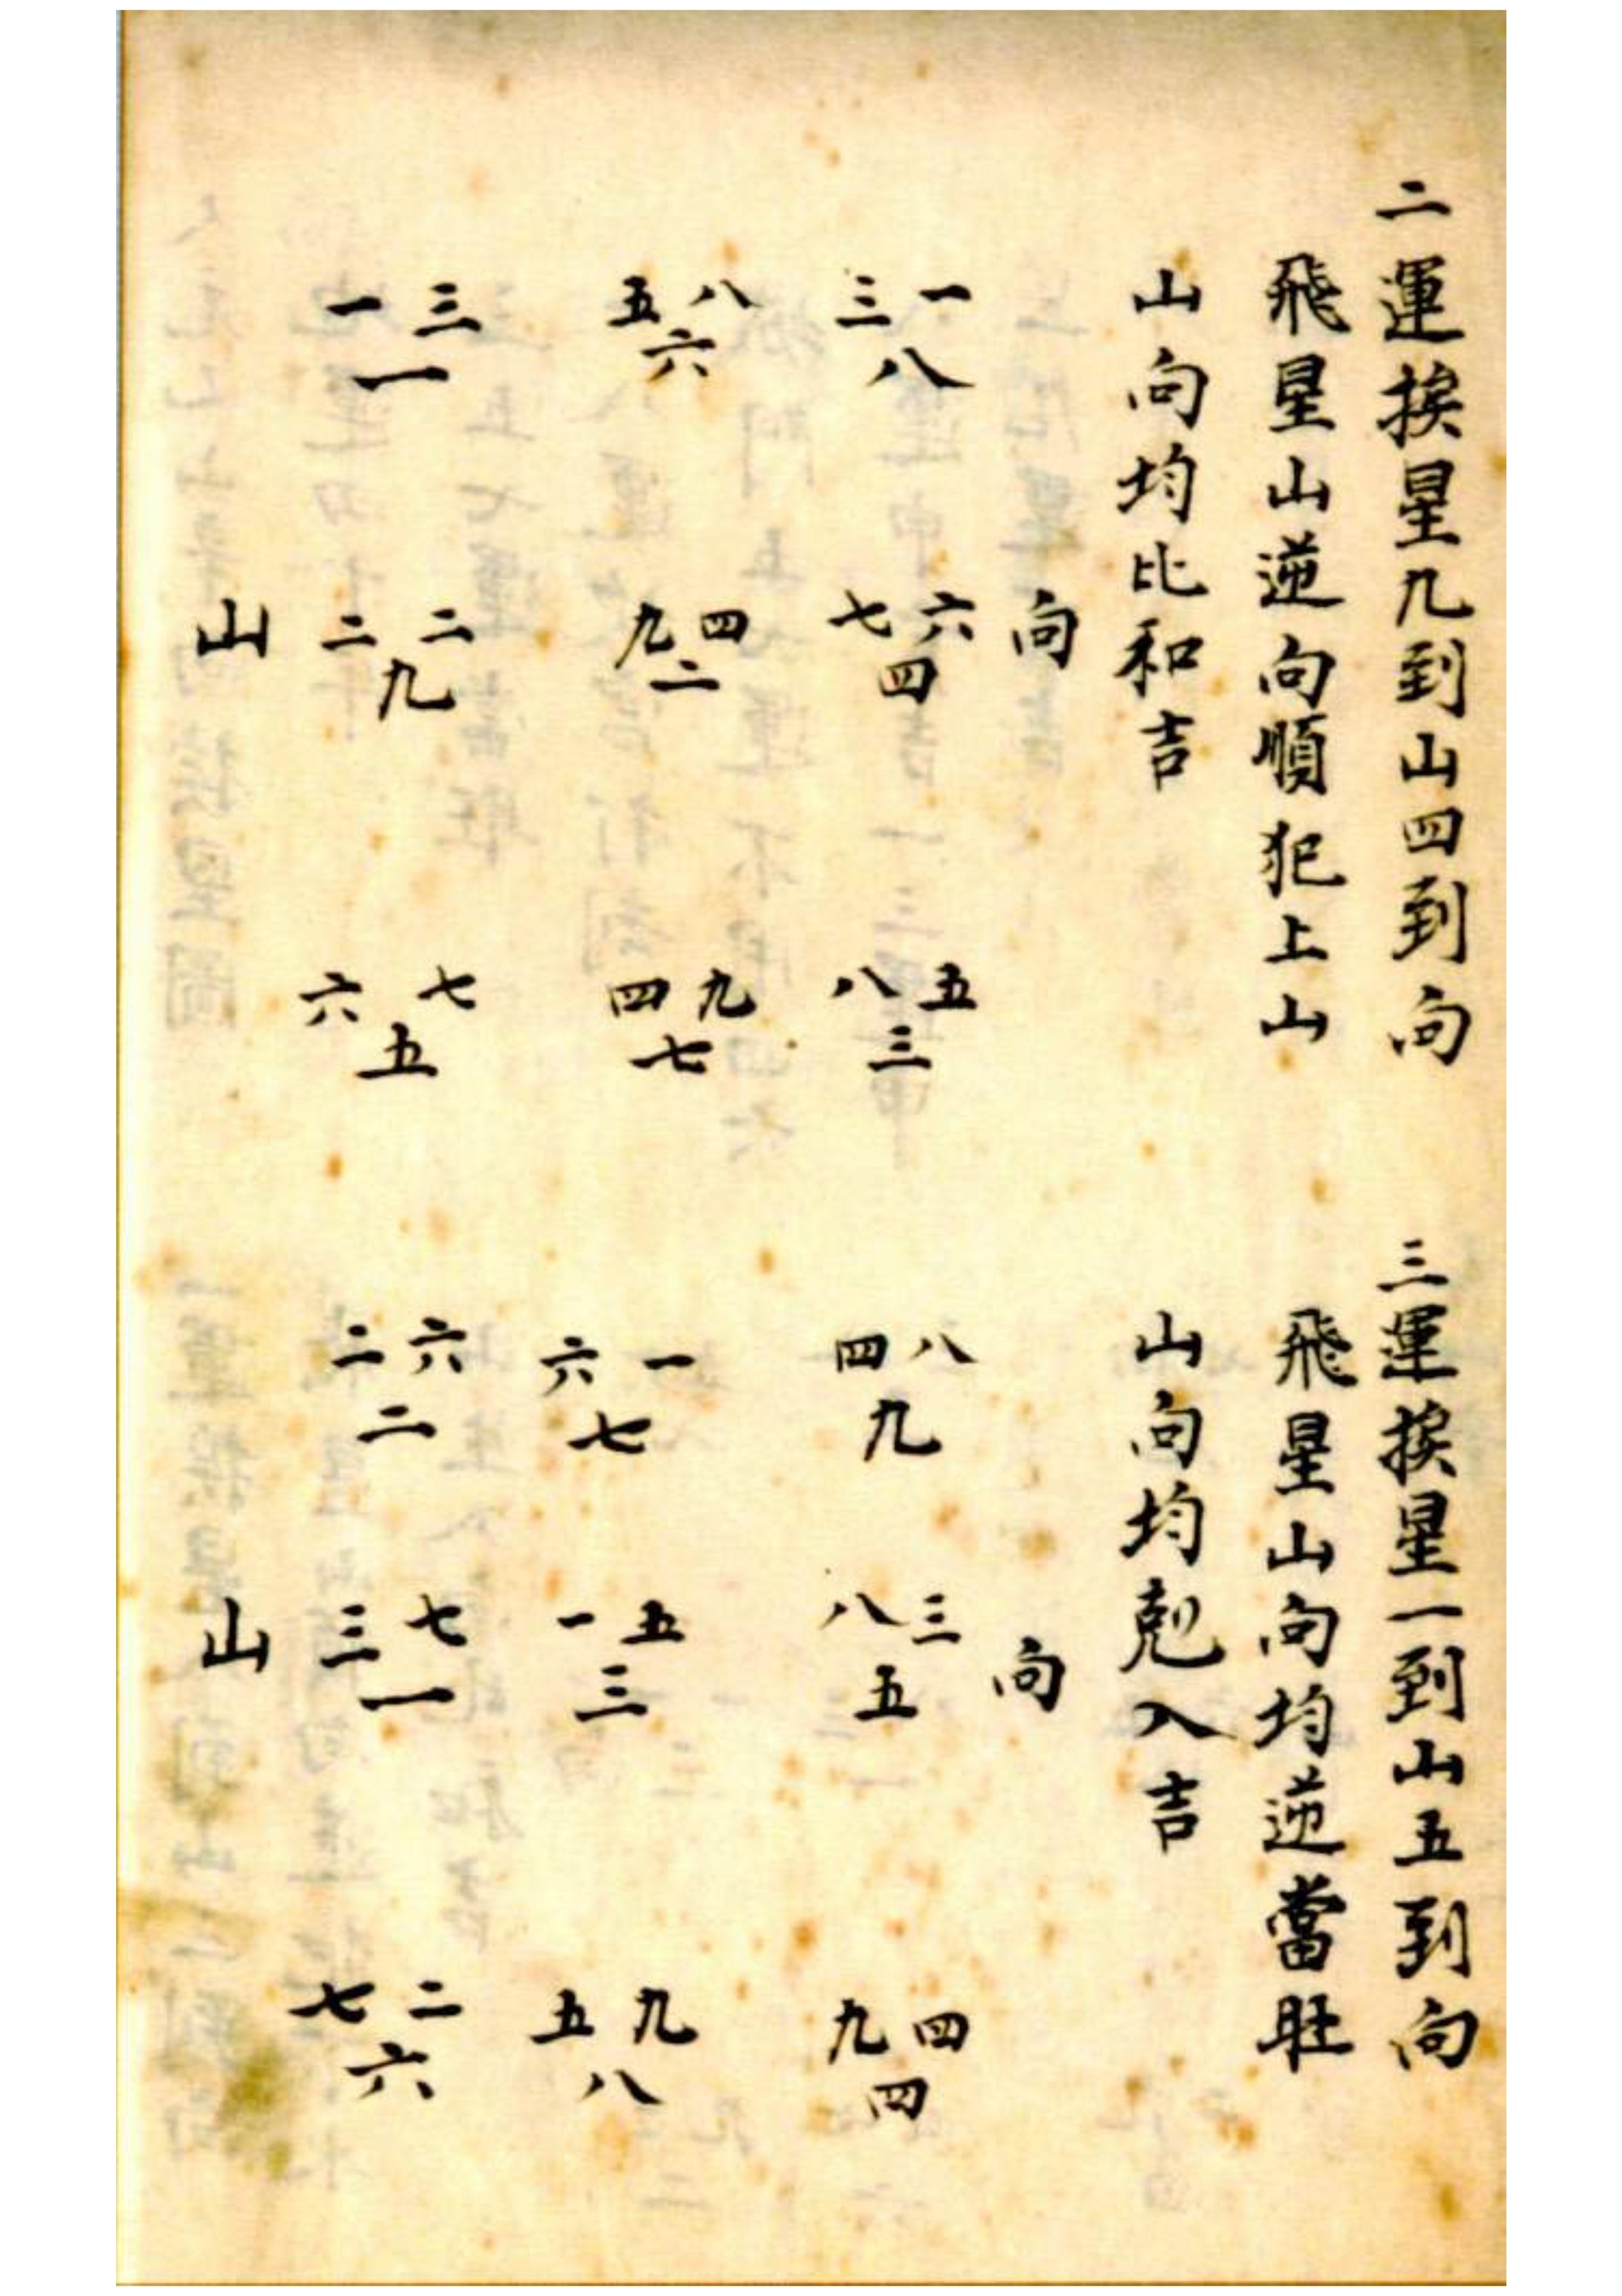 二運挨星九到山四到向
飛星山逆向順犯上山
山向均比和吉
向
三一
八
七六
四
八五
三
五八
六
九四
二
四九
七
一三
一
二二
九
六七
五
山
三運挨星一到山五到向
飛星山向均逆當旺
山向均剋入吉
向
四八
九
八三
五
九四
四
六一
七
一五
三
五九
八
二六
二
三七
一
七二
六
山